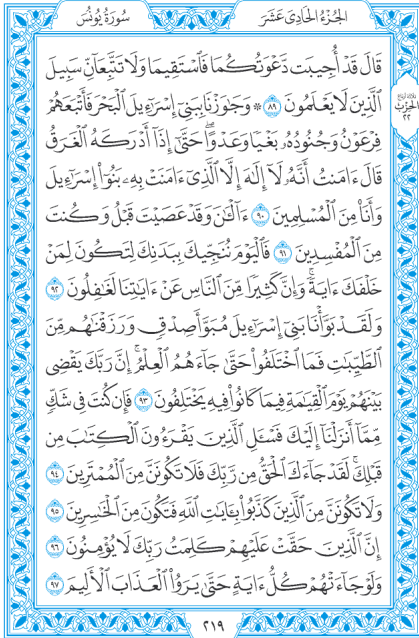 الجُزْءُ الحَادِى عَشَرَ
سُورَةُ يُونُسَ
قَالَ قَدۡ أُجِيبَت دَّعۡوَتُكُمَا فَٱسۡتَقِيمَا وَلَا تَتَّبِعَآنِّ سَبِيلَ
ٱلَّذِينَ لَا يَعۡلَمُونَ ٨٩ ۞ وَجَٰوَزۡنَا بِبَنِيٓ إِسۡرَٰٓءِيلَ ٱلۡبَحۡرَ فَأَتۡبَعَهُمۡ
فِرۡعَوۡنُ وَجُنُودُهُۥ بَغۡيٗا وَعَدۡوًاۖ حَتَّىٰٓ إِذَآ أَدۡرَكَهُ ٱلۡغَرَقُ
قَالَ ءَامَنتُ أَنَّهُۥ لَآ إِلَٰهَ إِلَّا ٱلَّذِيٓ ءَامَنَتۡ بِهِۦ بَنُوٓاْ إِسۡرَٰٓءِيلَ
وَأَنَا۠ مِنَ ٱلۡمُسۡلِمِينَ ٩٠ ءَآلۡـَٰٔنَ وَقَدۡ عَصَيۡتَ قَبۡلُ وَكُنتَ
مِنَ ٱلۡمُفۡسِدِينَ ٩١ فَٱلۡيَوۡمَ نُنَجِّيكَ بِبَدَنِكَ لِتَكُونَ لِمَنۡ
خَلۡفَكَ ءَايَةٗۚ وَإِنَّ كَثِيرٗا مِّنَ ٱلنَّاسِ عَنۡ ءَايَٰتِنَا لَغَٰفِلُونَ ٩٢
وَلَقَدۡ بَوَّأۡنَا بَنِيٓ إِسۡرَٰٓءِيلَ مُبَوَّأَ صِدۡقٖ وَرَزَقۡنَٰهُم مِّنَ
ٱلطَّيِّبَٰتِ فَمَا ٱخۡتَلَفُواْ حَتَّىٰ جَآءَهُمُ ٱلۡعِلۡمُۚ إِنَّ رَبَّكَ يَقۡضِي
بَيۡنَهُمۡ يَوۡمَ ٱلۡقِيَٰمَةِ فِيمَا كَانُواْ فِيهِ يَخۡتَلِفُونَ ٩٣ فَإِن كُنتَ فِي شَكّٖ
مِّمَّآ أَنزَلۡنَآ إِلَيۡكَ فَسۡـَٔلِ ٱلَّذِينَ يَقۡرَءُونَ ٱلۡكِتَٰبَ مِن
قَبۡلِكَۚ لَقَدۡ جَآءَكَ ٱلۡحَقُّ مِن رَّبِّكَ فَلَا تَكُونَنَّ مِنَ ٱلۡمُمۡتَرِينَ ٩٤
وَلَا تَكُونَنَّ مِنَ ٱلَّذِينَ كَذَّبُواْ بِـَٔايَٰتِ ٱللَّهِ فَتَكُونَ مِنَ ٱلۡخَٰسِرِينَ ٩٥
إِنَّ ٱلَّذِينَ حَقَّتۡ عَلَيۡهِمۡ كَلِمَتُ رَبِّكَ لَا يُؤۡمِنُونَ ٩٦
وَلَوۡ جَآءَتۡهُمۡ كُلُّ ءَايَةٍ حَتَّىٰ يَرَوُاْ ٱلۡعَذَابَ ٱلۡأَلِيمَ ٩٧
الحِزْبُ
٢٢
٢١٩